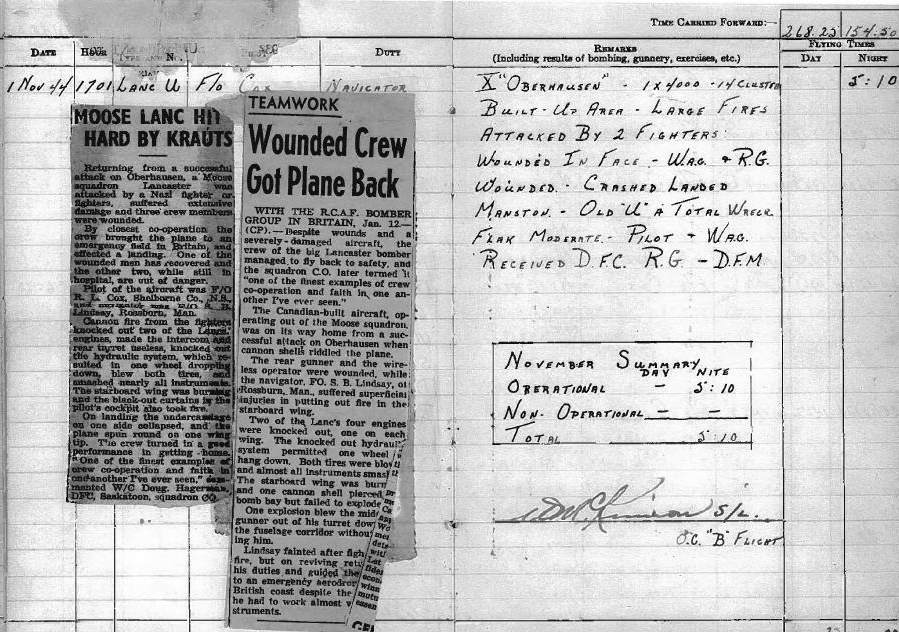 TIME CARRIED FORWARD:—
268.25 154.50
DATE
HOUR
DUTY
REMARKS
(Including results of bombing, gunnery, exercises, etc.)
FLYING TIMES
DAY
NIGHT
1 NOV 44 1701 LANC U F/O COX NAVIGATOR
X "OBERHAUSEN" - 1X4000 - 14 CLUSTER
5:10
BUILT-UP AREA - LARGE FIRES
ATTACKED BY 2 FIGHTERS:
WOUNDED IN FACE - W.A.G. & R.G.
WOUNDED. - CRASHED LANDED
MANSTON - OLD "U" A TOTAL WRECK
FLAK MODERATE - PILOT & WAG.
RECEIVED D.F.C. R.G. - D.F.M.
NOVEMBER SUMMARY
DAY NITE
OPERATIONAL - 5:10
NON-OPERATIONAL - -
TOTAL 5:10
S/L.
O.C. "B" FLIGHT
MOOSE LANC HIT
HARD BY KRAUTS
Returning from a successful
attack on Oberhausen, a Moose
squadron Lancaster was
attacked by a Nazi fighter or
fighters, suffered extensive
damage and three crew members
were wounded.
By closest co-operation the
crew brought the plane to an
emergency field in Britain, and
effected a landing. One of the
wounded men has recovered and
the other two, while still in
hospital, are out of danger.
Pilot of the aircraft was F/O
R. L. Cox, Shelborne Co., N.S.,
Lindsay, Rossborn, Man.
Cannon fire from the fighters
knocked out two of the Lancs'
engines, made the intercom and
rear turret useless, knocked out
the hydraulic system, which re-
sulted in one wheel dropping
down, blew both tires, and
smashed nearly all instruments.
The starboard wing was burning
and the black-out curtains in the
pilot's cockpit also took fire.
On landing the undercarriage
on one side collapsed, and the
plane spun round on one wing
tip. The crew turned in a good
performance in getting home.
"One of the finest examples of
crew co-operation and faith in
one another I've ever seen," com-
mented W/C Doug. Hagerman,
DFC, Saskatoon, squadron CO.
TEAMWORK
Wounded Crew
Got Plane Back
WITH THE R.C.A.F. BOMBER
GROUP IN BRITAIN, Jan. 12.—
(CP).—Despite wounds and a
severely-damaged aircraft, the
crew of the big Lancaster bomber
managed to fly back to safety, and
the squadron C.O. later termed it
"one of the finest examples of crew
co-operation and faith in one an-
other I've ever seen."
The Canadian-built aircraft, op-
erating out of the Moose squadron,
was on its way home from a suc-
cessful attack on Oberhausen when
cannon shells riddled the plane.
The rear gunner and the wire-
less operator were wounded, while
the navigator, FO. S. B. Lindsay, of
Rossburn, Man., suffered superficial
injuries in putting out fire in the
starboard wing.
Two of the Lanc's four engines
were knocked out, one on each
wing. The knocked out hydraulic
system permitted one wheel
hang down. Both tires were blow
and almost all instruments smas
The starboard wing was burn
and one cannon shell pierced
bomb bay but failed to explode
One explosion blew the mid
gunner out of his turret dow
the fuselage corridor withou
ing him.
Lindsay fainted after figh
fire, but on reviving retu
his duties and guided the
to an emergency aerodro
British coast despite the
he had to work almost
struments.